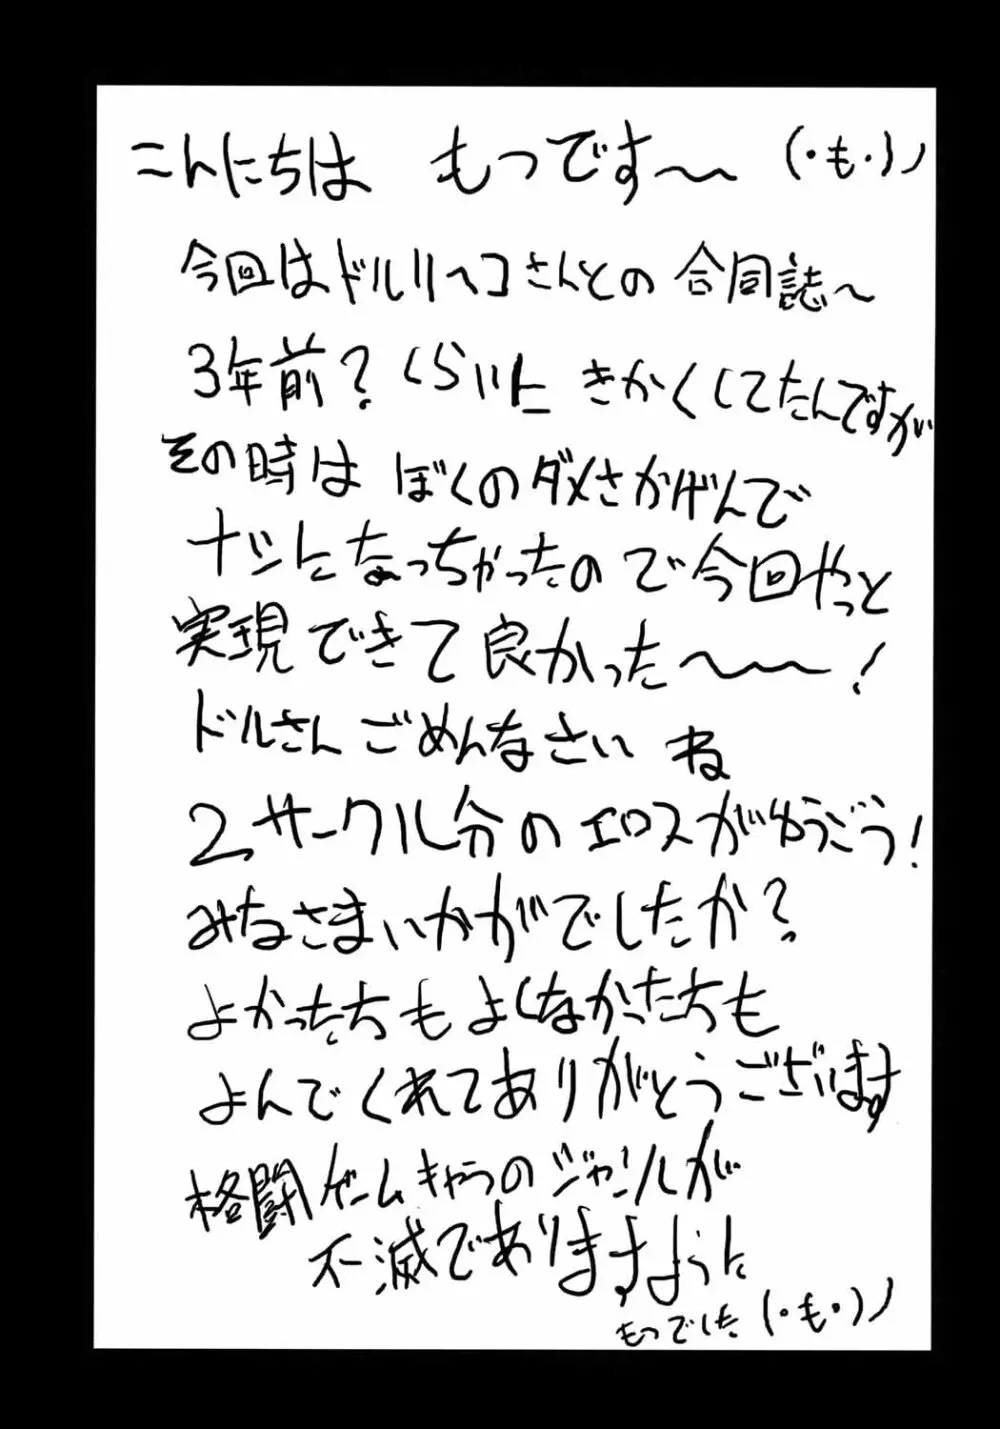 こんにちは もつです〜 (・も・)ノ
今回はドルリヘコさんとの 合同誌〜
3年前?くらいに きかくしてたんですが
その時は ぼくのダメさかげんで
ナシになっちゃったので今回やっと
実現できて良かった〜〜!
ドルさん ごめんなさい ね
2サークル分のエロスがゆうごう!
みなさまいかがでしたか?
よかったちも よくなかたたちも
よんでくれてありがとうございます
格闘ゲームキャラのジャンルが
不滅でありますように
もつでした (・も・)ノ